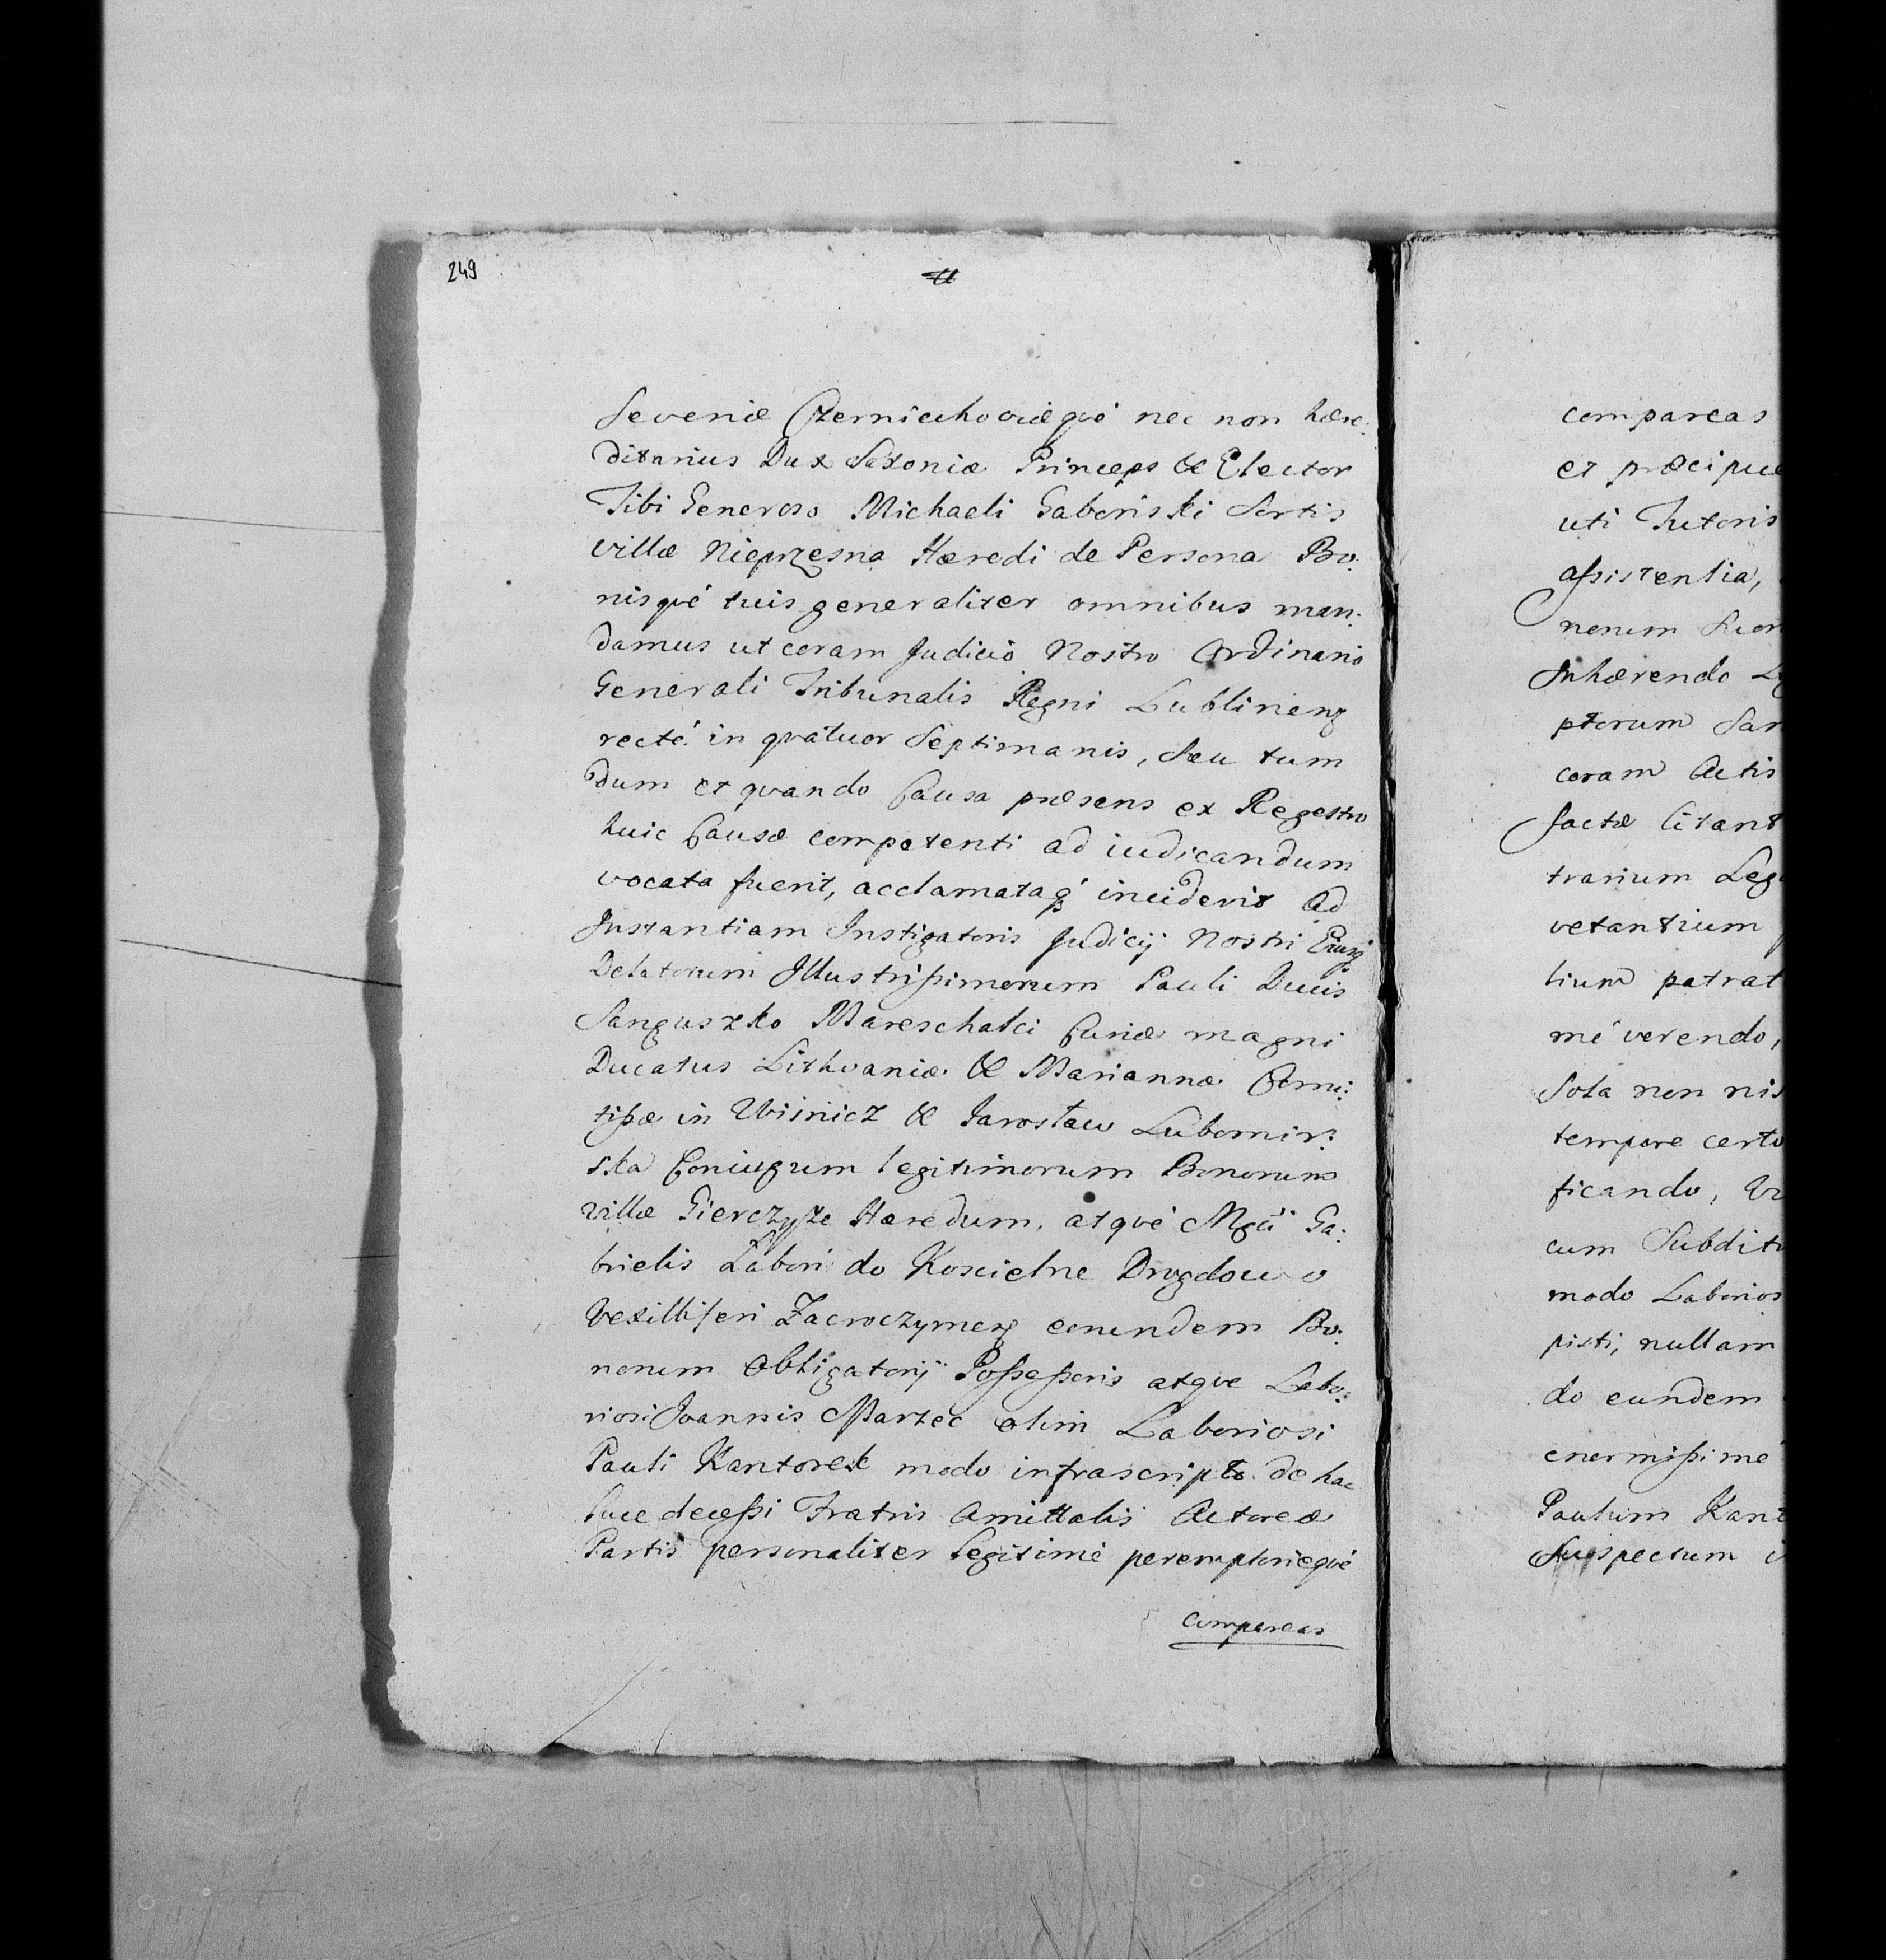 249
Severiæ Czerniechoviæqvé nec non hære:
ditarius Dux Saxoniæ Princeps & Elector
Tibi Generoso Michaeli Gaboriski Sortis
villæ Nieprzesna Hæredi de Persona Bo:
nisqvé tuis generaliter omnibus man:
damus ut coram Judicio Nostro Ordinario
Generali Tribunalis Regni Lublinens
recté in qvatuor Septimanis, seu tum
dum et qvando Causa præsens ex Regestro
huic Causæ competenti ad iudicandum
vocata fuerit, acclamataq inciderit ad
Instantiam Instigatoris Judicij Nostri Eiusq
Delatorum Illustrissimorum Pauli Ducis
Sanguszko Mareschalci Curiæ magni
Ducatus Lithvaniæ & Mariannæ Comi:
tissæ in Wisnicz & Jarosław Lubomir:
ska Coniugum legitimorum Bonorum
villæ Gierczyze Hæredum, atqvé Mgci Ga:
brielis Zabori do Koscielne Drogdowo
Vexilliferi Zacroczymens eorundem Bo:
norum Obligatorij Possessoris atqve Labo:
riosi Joannis Marzec olim Laboriosi
Pauli Kantorek modo infrascripto de hac
luce decessi Fratris Amittalis Actoreæ
Partis personaliter legitimé peremptorieqvé
compareas
compareas
et præcipue
uti Tutoris
assistentia,
norum
Inhærendo
ptorum
coram Actis
factæ
trarium
vetantium
lium patrat
mé verendo,
Sola non nis
tempore certo
ficando,
cum Subdit
modo Laborios
pisti, nullam
do eundem
enormissimé
Paulum Kant
Suspectum